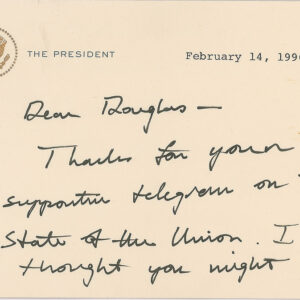 THE PRESIDENT
February 14, 199
Dear Douglas —
Thanks for your
supportive telegram on
State of the Union. I
thought you might